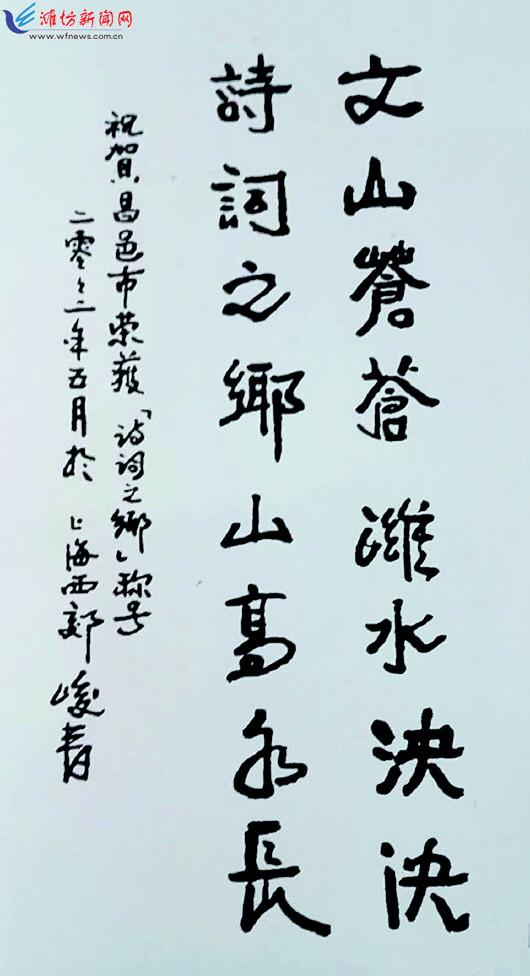 潍坊新闻网
www.wfnews.com.cn
文山蒼蒼濰水泱泱
詩詞之鄉山高水長
祝賀昌邑市荣獲「诗词之鄉」称号
二零々二年五月於上海西郊 峻青